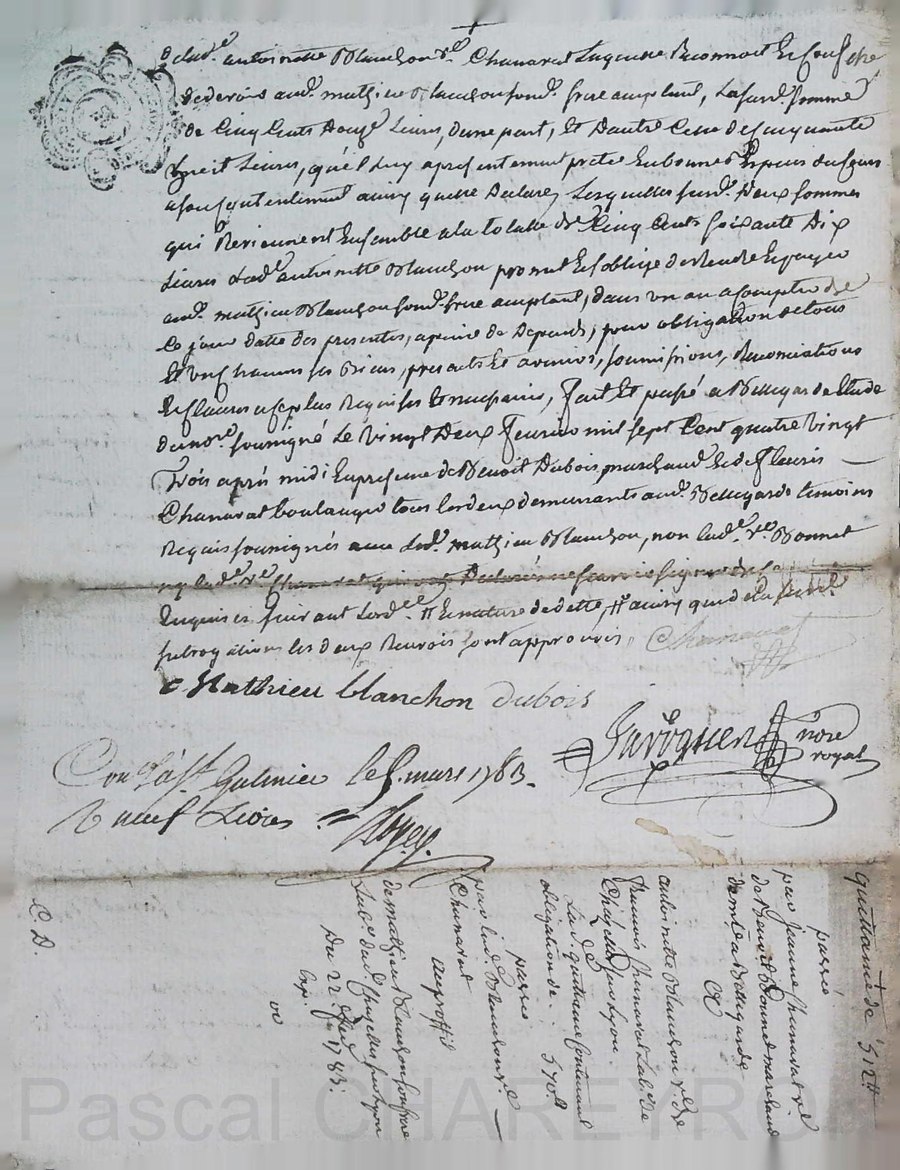 de lad.e antoinette Blanchon v.e Chanavat laquelle reconnoit et confesse
de devoir aud. mathieu Blanchon son d. frere acceptant, la susd. somme
de Cinq Cents Douze Livres, d'une part, Et Dautre Celle de cinquante
huit Livres, qu'el luy a presentement
a son contentement ainsy quelle Declare, Lesquelles susd. Deux sommes
qui Reviennent Ensemble a la totalle de Cinq Cents soixante Dix
Livres Lad.e antoinette Blanchon promet Et soblige de Rendre Et payer
aud. mathieu Blanchon son d. frere acceptant, dans un an a compter de
Ce jour datte des presentes, a peine de Depends, pour obligation de tous
Et un Chacun ses Biens, presents Et avenir, soumissions, Renonciations
Et Clauses Requises Et necessaires, Fait Et passé a Bellegarde Etude
du no.re soussigné Le Vingt Deux Fevrier mil sept Cent quatre vingt
Trois aprés midi En presence de Benoit Dubois marchand Et de Fleuris
Chanavat boulanger tous les deux demeurants aud. Bellegarde temoins
Requis soussignés avec Led. mathieu Blanchon, non lad.e v.e Bonnet
ny lad.e v.e Chanavat qui ont Declaré ne scavoir signer de ce
Enquises suivant Lord.ce # Et nature de dette # ainsy que de la
subrogation les deux Renvois sont approuvés. Chanavat
Mathieu blanchon dubois
nore
royal
Con.lé a St Galmier le 5 mars 1783.
R neuf Livres
C. D.
quittance de 512 ₶
passée
par jeanne Chanavat v.e
de Benoit Bonnet marchand
demt a Bellegarde
a
antoinette Blanchon v.e de
Chanavat
La d. quittance Contenant
obligation de 570 ₶
passée
par lad. Blanchon v.e
Chanavat
au proffit
de mathieu Blanchon son frere
Du 22 1783.
Exp.